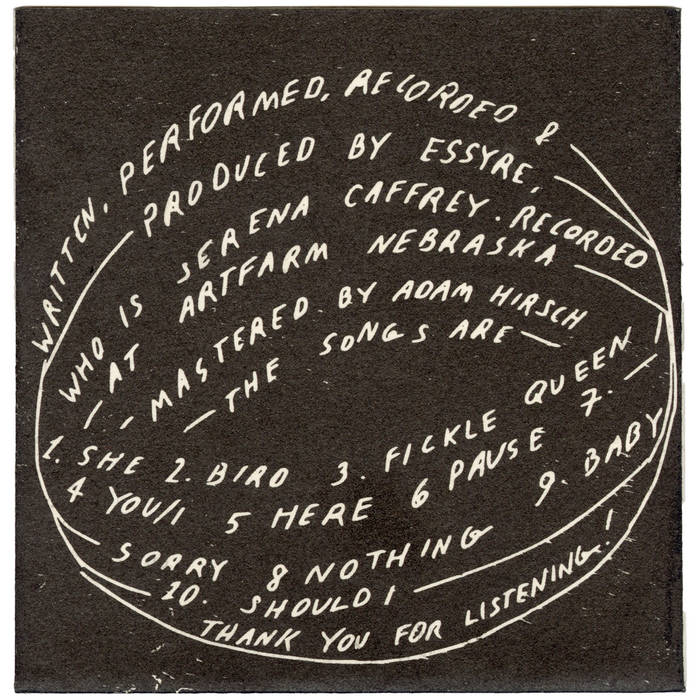 WRITTEN, PERFORMED, RECORDED &
PRODUCED BY ESSYRE,
WHO IS SERENA CAFFREY. RECORDED
AT ARTFARM NEBRASKA
MASTERED BY ADAM HIRSCH
— THE SONGS ARE —
1. SHE 2. BIRD 3. FICKLE QUEEN
4 YOU/I 5 HERE 6 PAUSE 7.
SORRY 8 NOTHING 9. BABY
10. SHOULD I
THANK YOU FOR LISTENING!